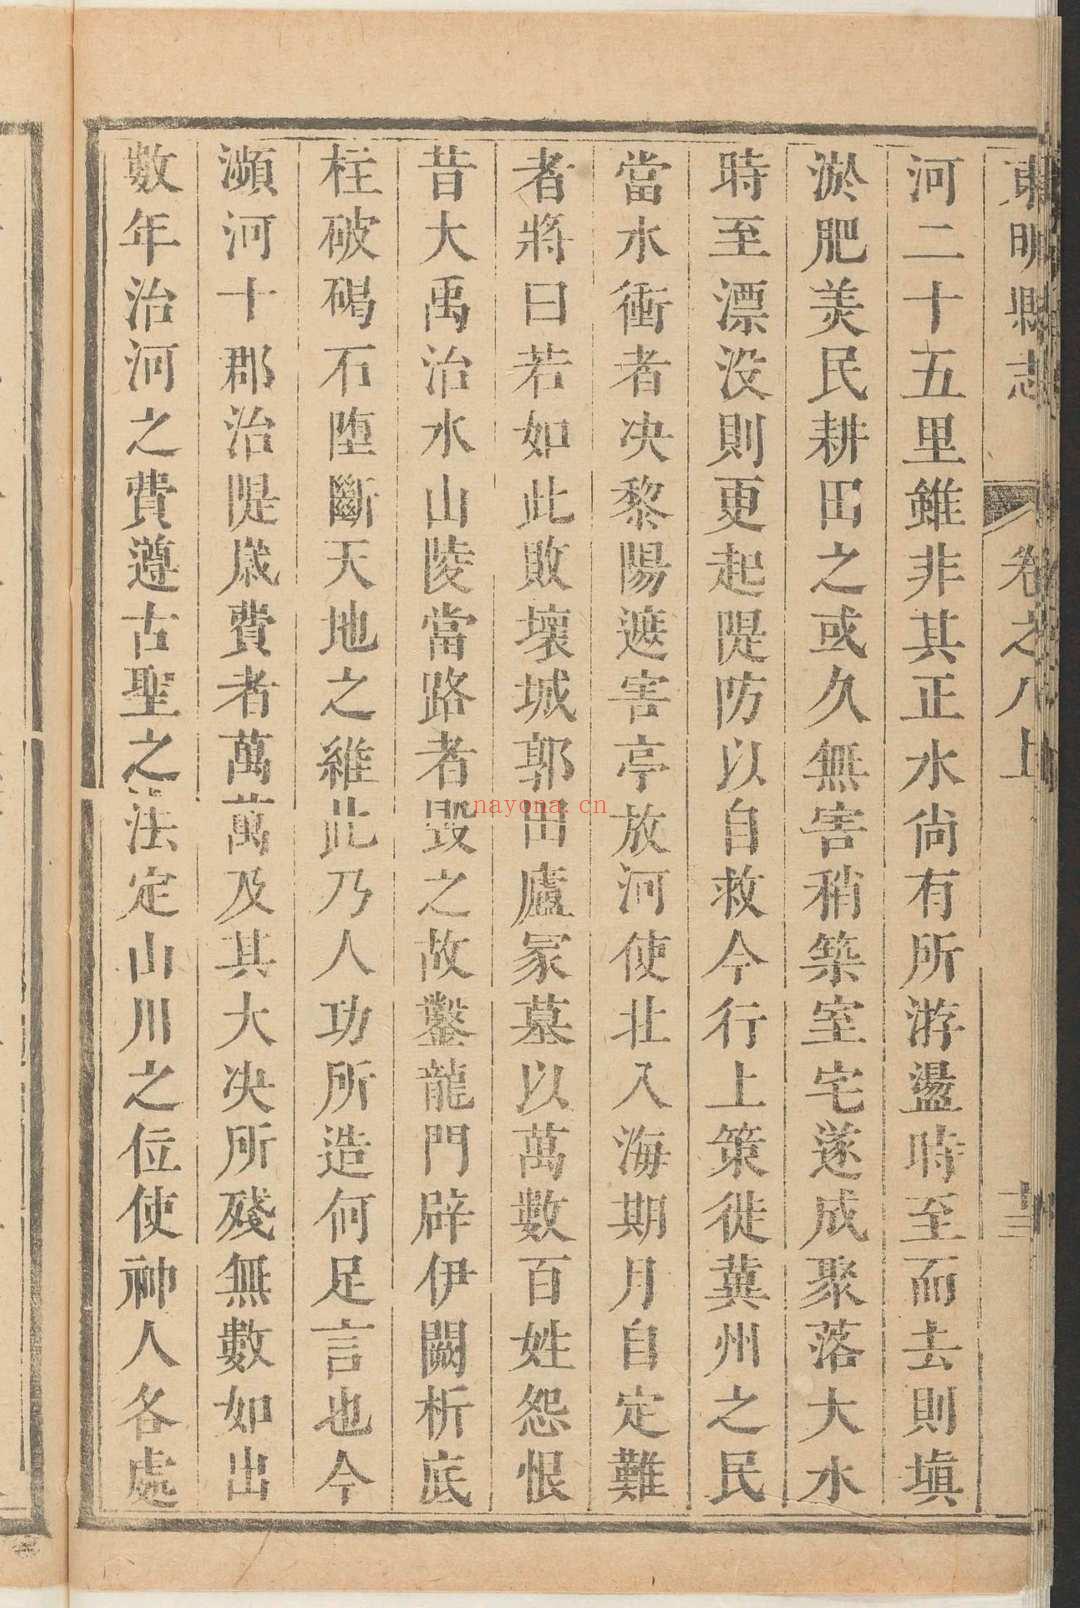 東明縣志 卷之八上 十三
河二十五里雖非其正水尙有所游盪時至而去則塡
淤肥美民耕田之或久無害稍築室宅遂成聚落大水
時至漂没則更起隄防以自救今行上策徙冀州之民
當水衝者决黎陽遮害亭放河使北入海期月自定難
者將曰若如此敗壞城郭田廬冢墓以萬數百姓怨恨
昔大禹治水山陵當路者毁之故鑿龍門辟伊闕析底
柱破碣石堕斷天地之維此乃人功所造何足言也今
瀕河十郡治隄歲費者萬萬及其大决所殘無數如出
數年治河之費遵古聖之法定山川之位使神人各處
nayona.cn